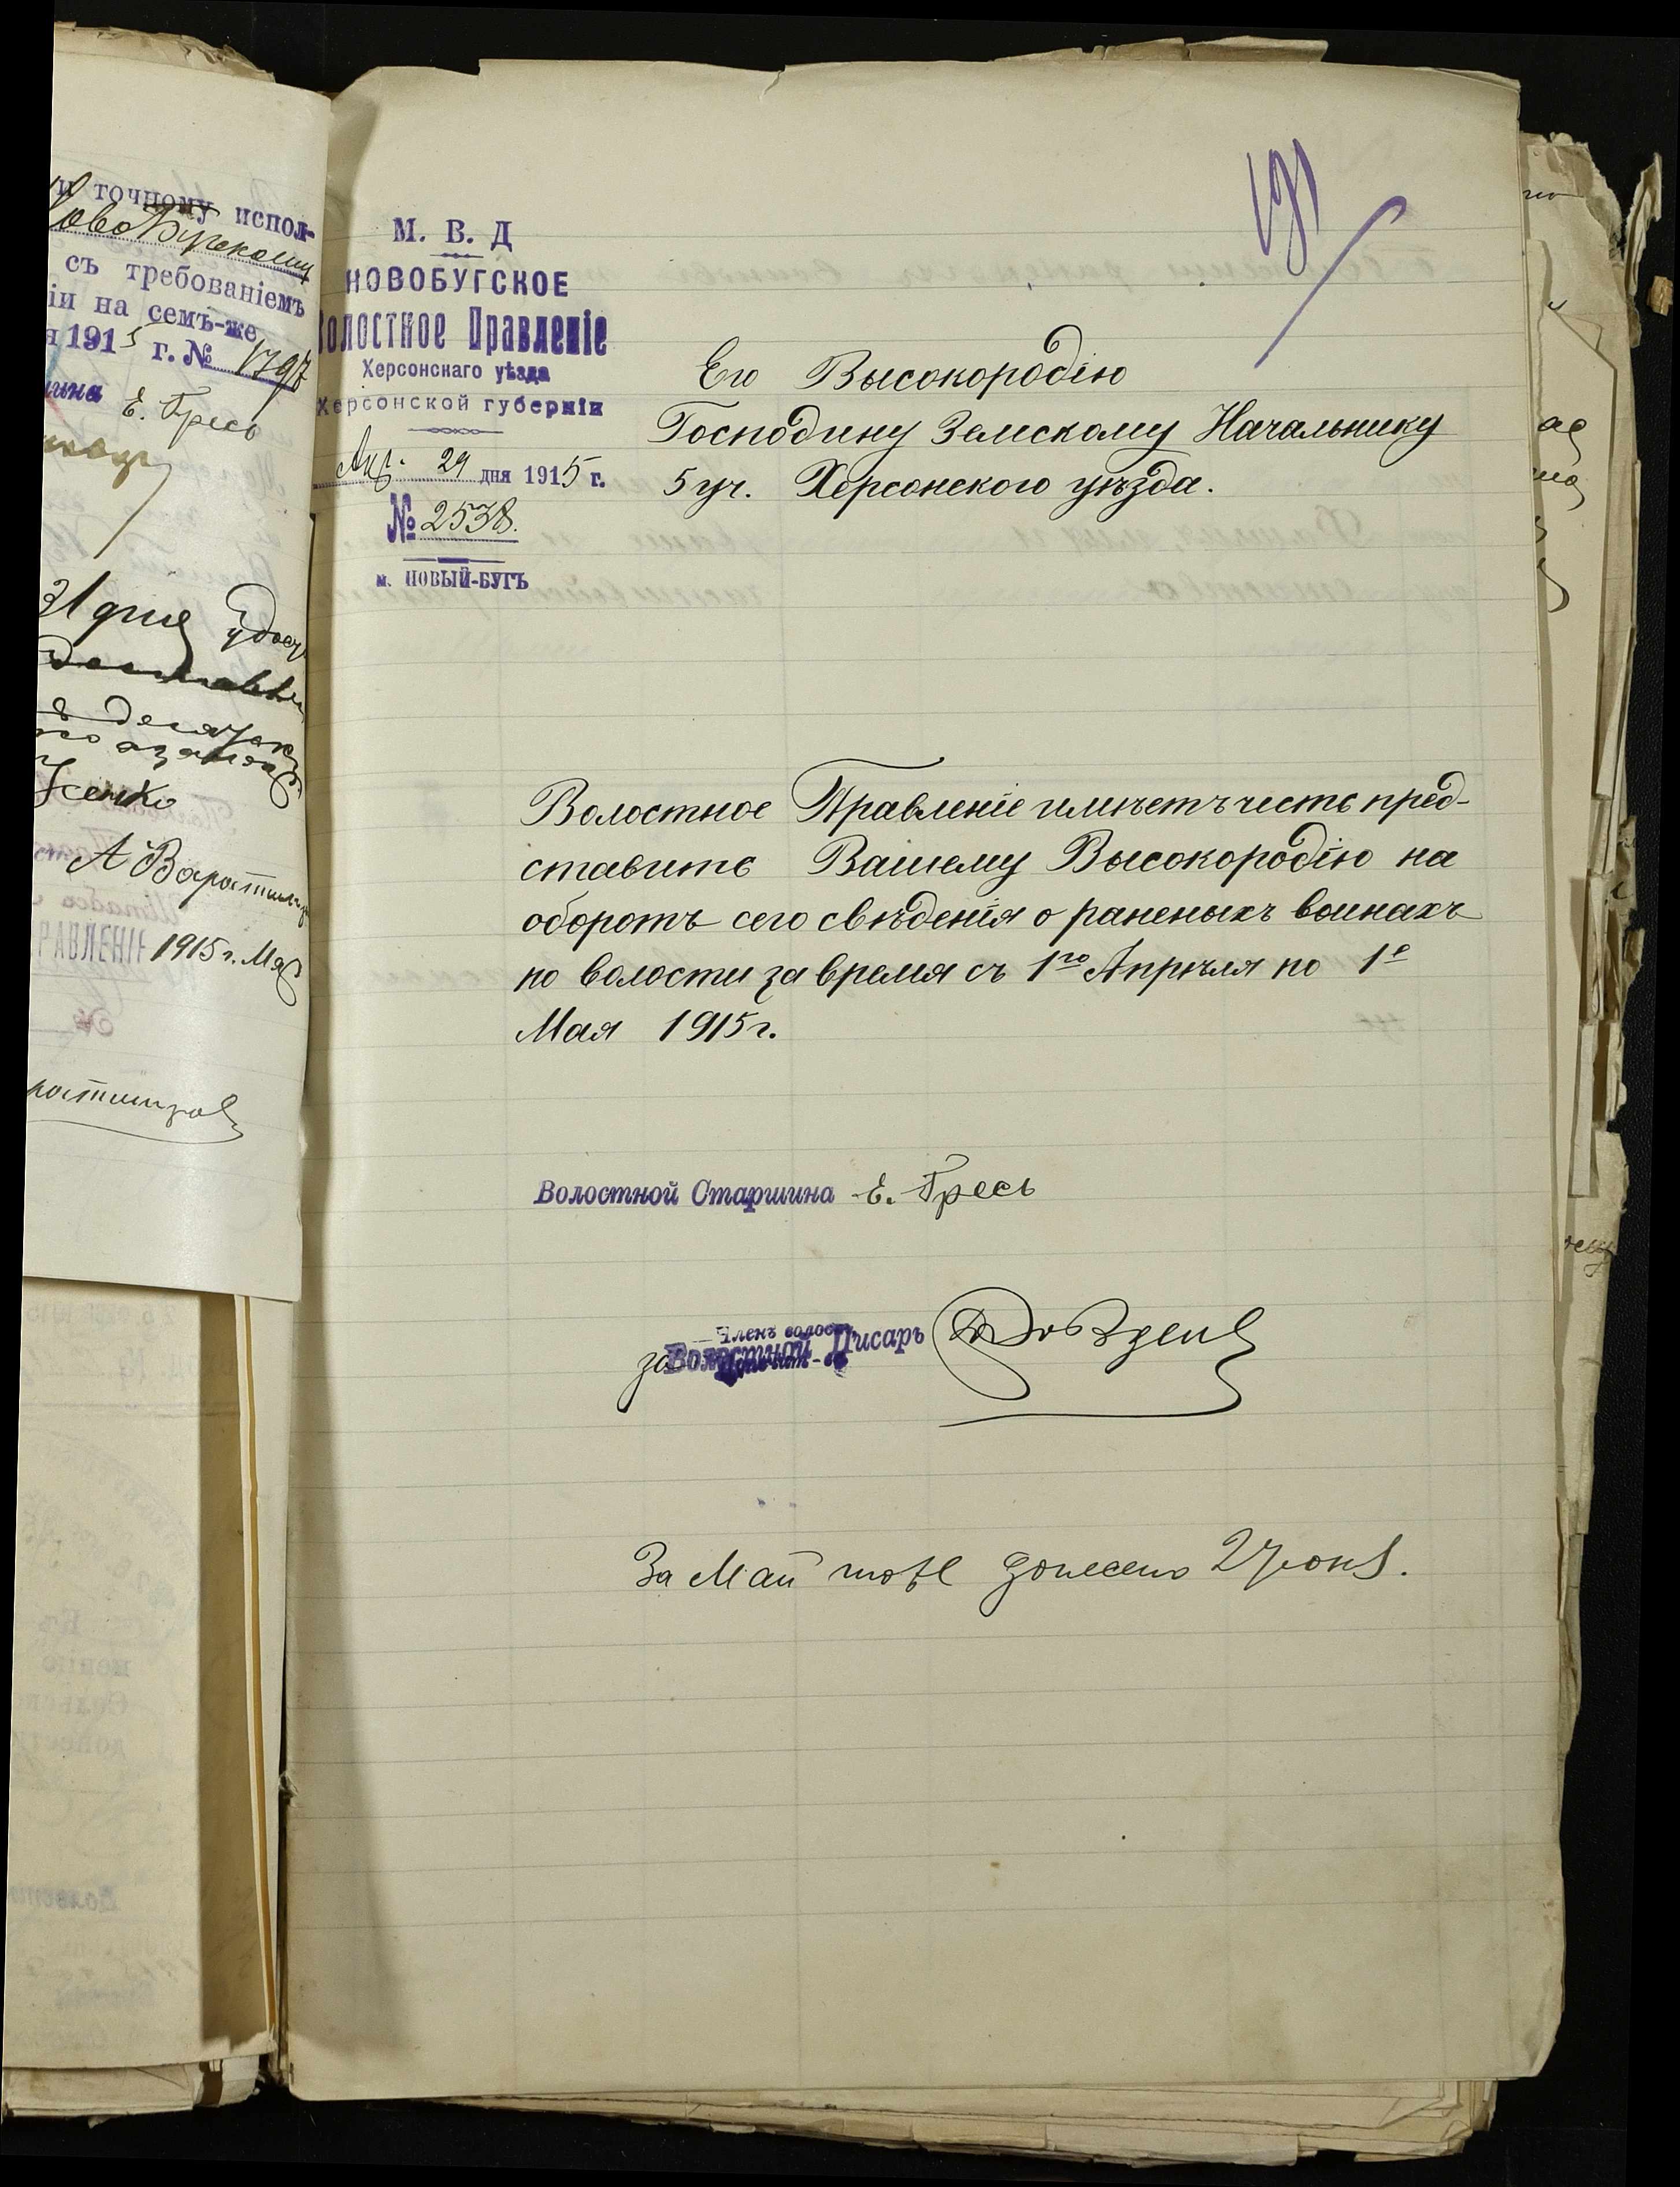 и точному испол-
НовоБугскому
съ требованіемъ
іи на семъ-же
1915 г. № 1797
Е. Гресь
31 дня
Усенко
РАВЛЕНІЕ 1915 г. Мая
191
М. В. Д
НОВОБУГСКОЕ
Волостное Правленіе
Херсонскаго уѣзда
Херсонской губерніи
Апр. 29 дня 1915 г.
№ 2538.
м. НОВЫЙ-БУГЪ
Его Высокородію
Господину Земскому Начальнику
5 уч. Херсонского уѣзда.
Волостное Правленіе имѣетъ честь пред-
ставить Вашему Высокородію на
оборотѣ сего свѣденія о раненыхъ воинахъ
по волости за время съ 1го Апрѣля по 1е
Мая 1915 г.
Волостной Старшина Е. Гресь
Членъ волост.
за Волостной Писарь
За Май тоже донесено 2 Июня.